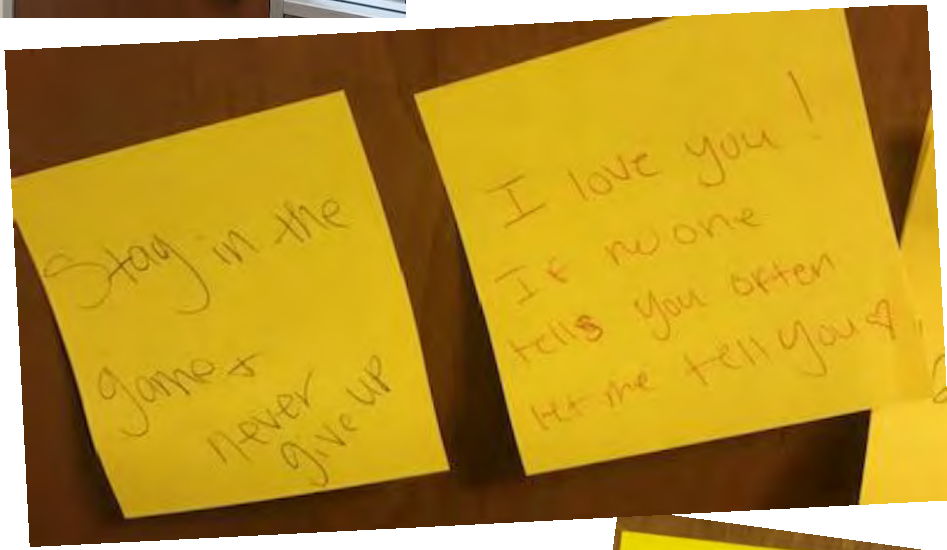 Stay in the
game +
never
give up
I love you!
If no one
tells you often
let me tell you